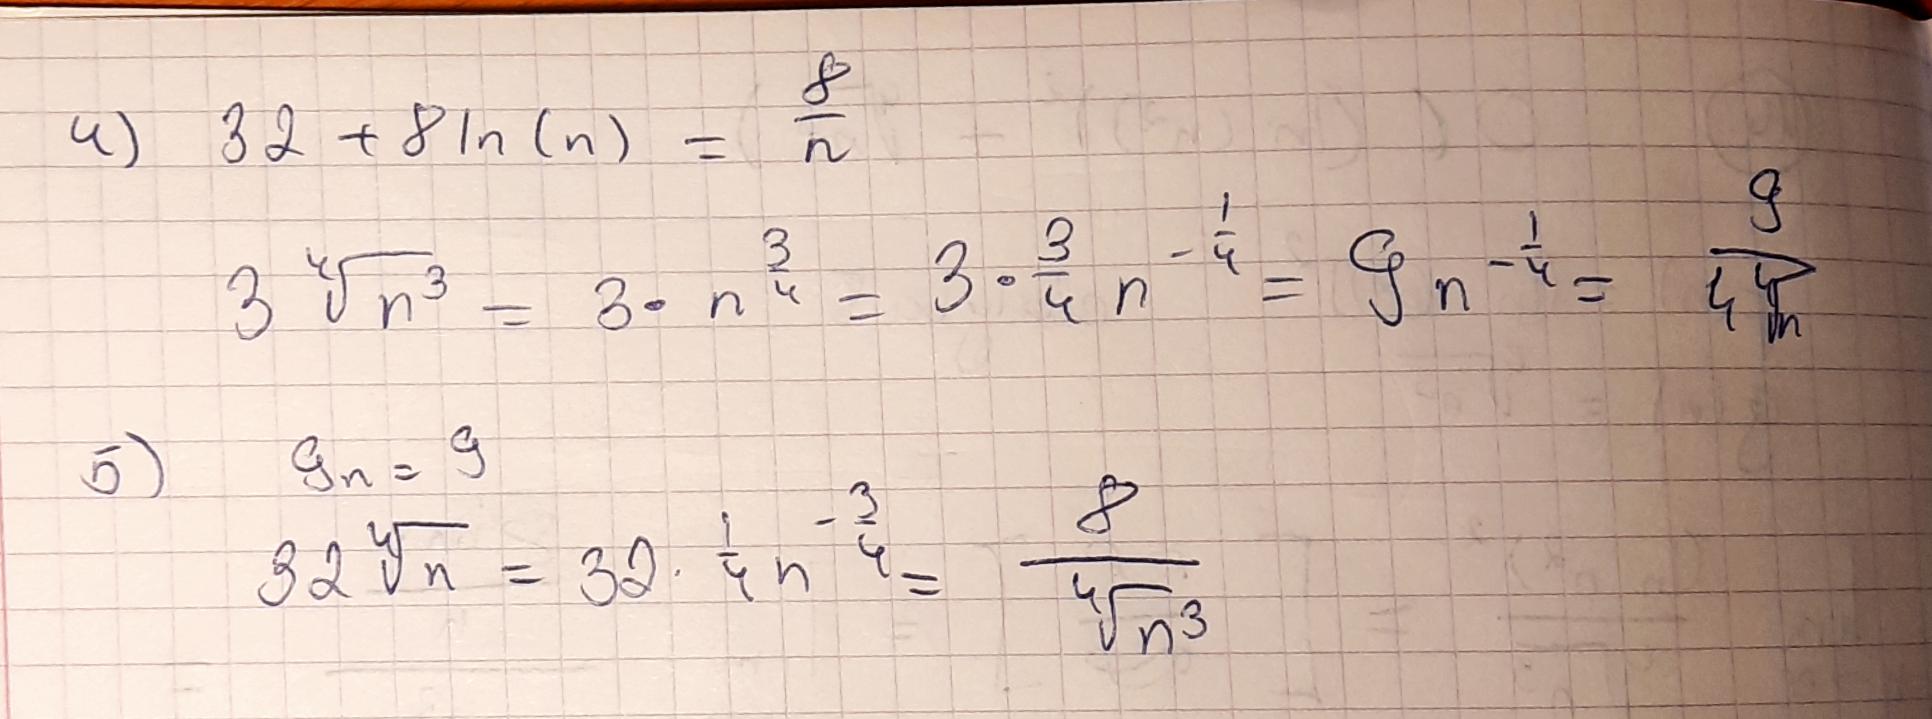 4) 32 + 8 ln (n) = 8/n
3 ∜n³ = 3 · n^(3/4) = 3 · 3/4 n^(-1/4) = 9 n^(-1/4) = 9/(4 ∜n)
5) 9n = 9
32 ∜n = 32 · 1/4 n^(-3/4) = 8/∜n³